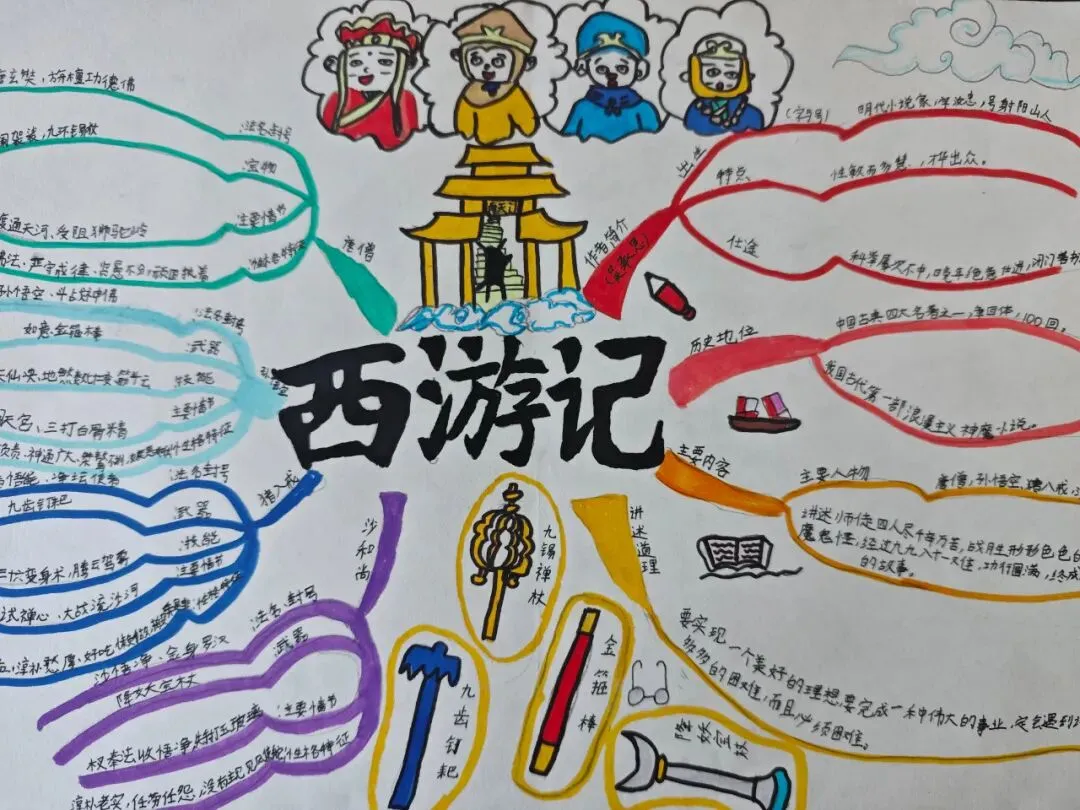 西游记
唐僧
玄奘,旃檀功德佛
法名封号
袈裟,九环锡杖
宝物
通天河、受阻狮驼岭
主要情节
严守戒律、
性格特征
孙悟空、斗战胜佛
法名封号
如意金箍棒
武器
技能
三打白骨精
主要情节
性格特征
猪八戒
悟能、净坛使者
法名封号
九齿钉耙
武器
三十六变身术,腾云驾雾
技能
试禅心、大战流沙河
主要情节
性格特征
沙和尚
沙悟净、金身罗汉
法名封号
降妖宝杖
武器
主要情节
性格特征
淳朴老实,任劳任怨,
作者简介
(吴承恩)
出生
(字号)
明代小说家,字汝忠,号射阳山人
特点
性敏而多慧,
出众。
仕途
科举屡次不中,
历史地位
中国古典四大名著之一,章回体,100回。
我国古代第一部浪漫主义神魔小说。
主要内容
主要人物
唐僧,孙悟空,猪八戒,
讲述师徒四人尽千辛万苦,战胜形形色色的
魔鬼怪,经过九九八十一难,功行圆满,终成
的故事。
讲述道理
要实现一个美好的理想要完成一种伟大的事业,定会遇到
多多的困难,而且必须困难。
九锡禅杖
金箍棒
九齿钉耙
降妖宝杖